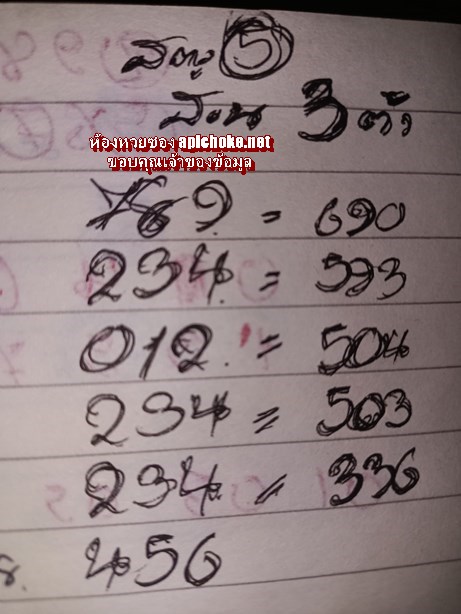 สตู 5
สเน 3 ตัว
ห้องหวยซอง apichoke.net
ขอบคุณเจ้าของข้อมูล
789. = 690
234. = 593
012. = 504
234 = 503
234. = 336
456